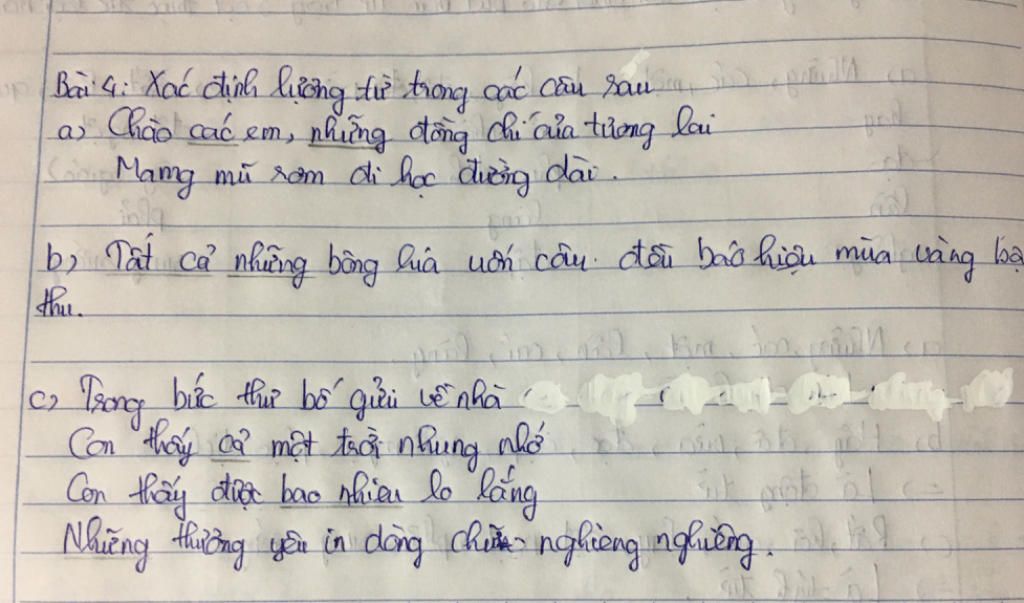 Bài 4: Xác định lượng từ trong các câu sau
a) Chào các em, những đồng chí của tương lai
Mang mũ rơm đi học đường dài.
b) Tất cả những bông lúa uốn câu đều báo hiệu mùa vàng bạ
thu.
c) Trong bức thư bố gửi về nhà
Con thấy cả một trời nhung nhớ
Con thấy được bao nhiêu lo lắng
Những thương yêu in dòng chữ nghiêng nghiêng.